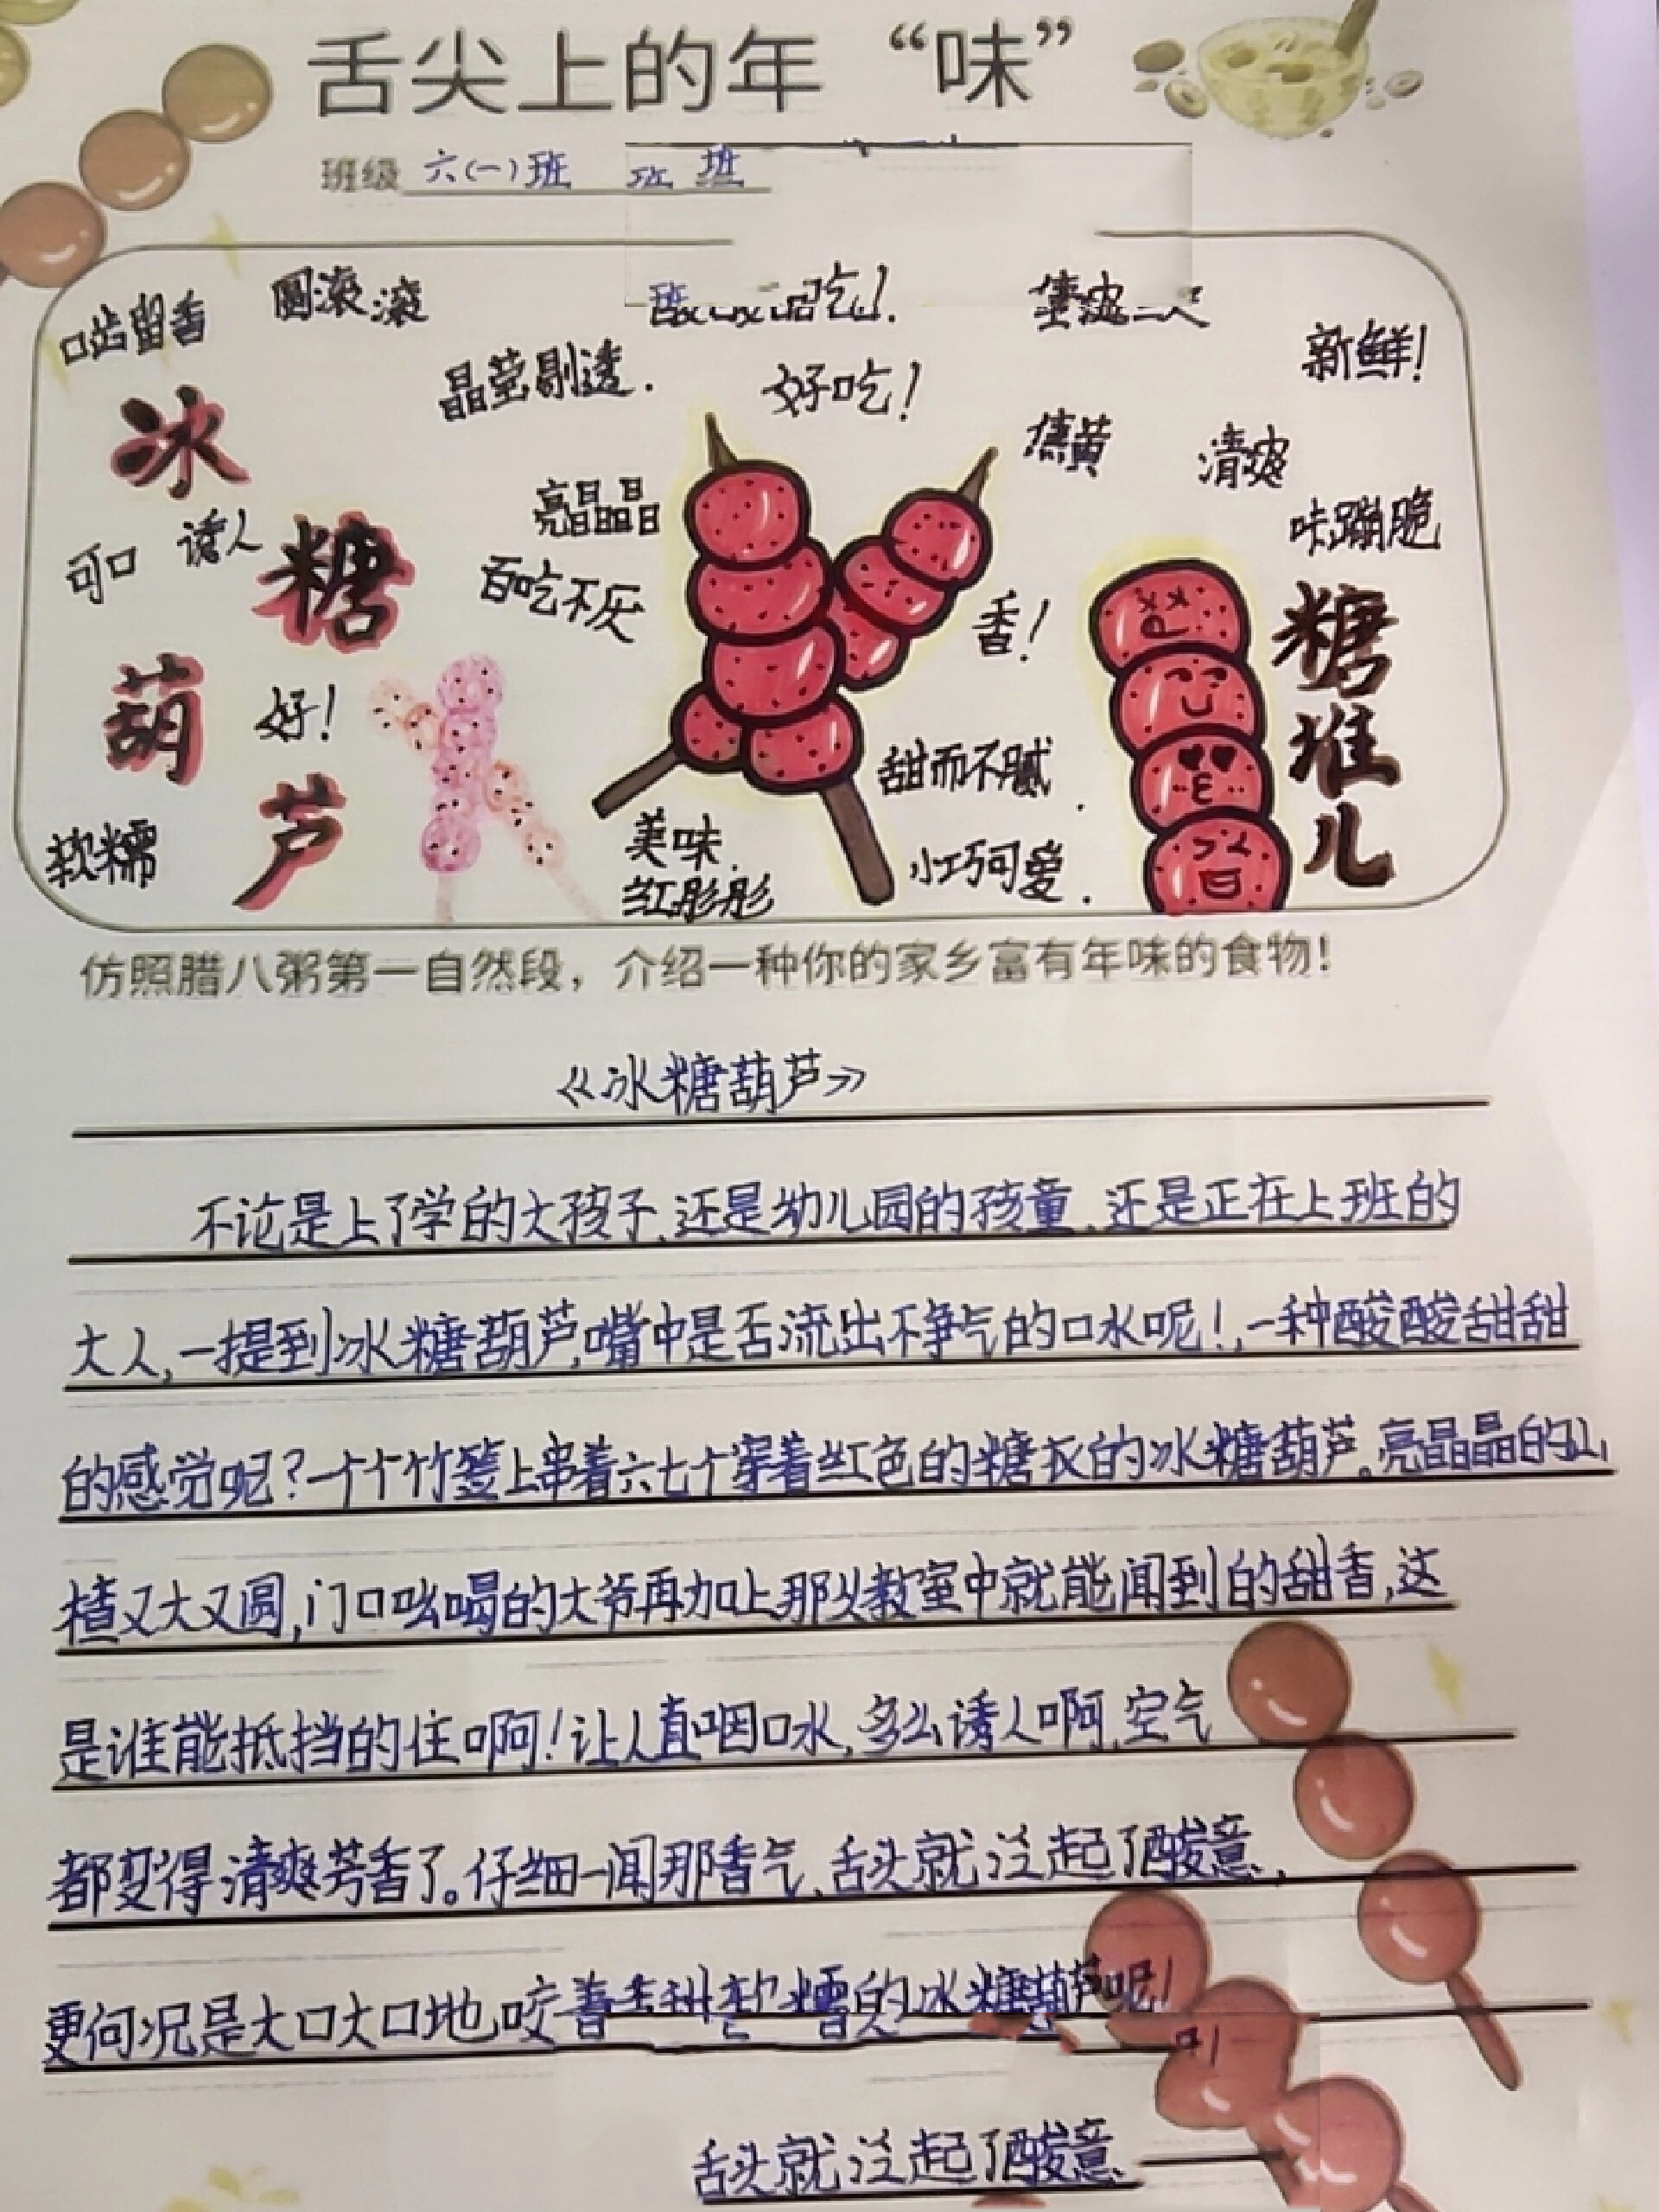 舌尖上的年“味”
班级 六(一)班 班 班
口齿留香 圆滚滚 班 吃!
晶莹剔透. 好吃! 新鲜!
冰 焦黄 清爽
亮晶晶 味蹦脆
可口 诱人 糖 百吃不厌 香! 糖堆儿
葫 好! 甜而不腻.
软糯 芦 美味. 小巧可爱.
红彤彤
仿照腊八粥第一自然段，介绍一种你的家乡富有年味的食物!
《冰糖葫芦》
不论是上了学的大孩子,还是幼儿园的孩童,还是正在上班的
大人,一提到冰糖葫芦,嘴中是否流出不争气的口水呢!,一种酸酸甜甜
的感觉呢?一个个竹签上串着六七个穿着红色的糖衣的冰糖葫芦。亮晶晶的山
楂又大又圆,门口吆喝的大爷再加上那从教室中就能闻到的甜香,这
是谁能抵挡的住啊!让人直咽口水,多么诱人啊,空气
都变得清爽芳香了。仔细一闻那香气,舌头就泛起了酸意,
更何况是大口大口地咬着香甜软糯的冰糖葫芦呢!
舌头就泛起了酸意